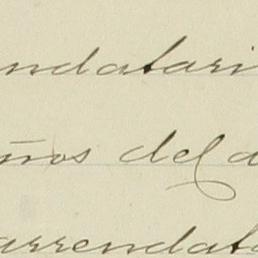 ndatari
ños del a
arrendat